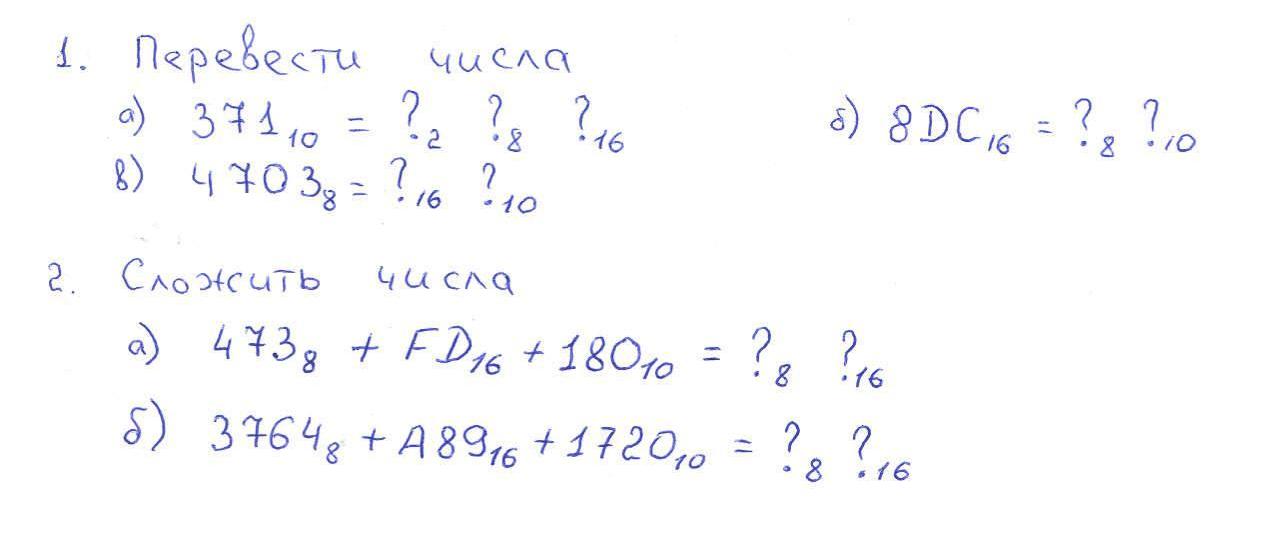 1. Перевести числа
а) 371₁₀ = ?₂ ?₈ ?₁₆ б) 8DC₁₆ = ?₈ ?₁₀
в) 4703₈ = ?₁₆ ?₁₀
2. Сложить числа
а) 473₈ + FD₁₆ + 180₁₀ = ?₈ ?₁₆
б) 3764₈ + A89₁₆ + 1720₁₀ = ?₈ ?₁₆